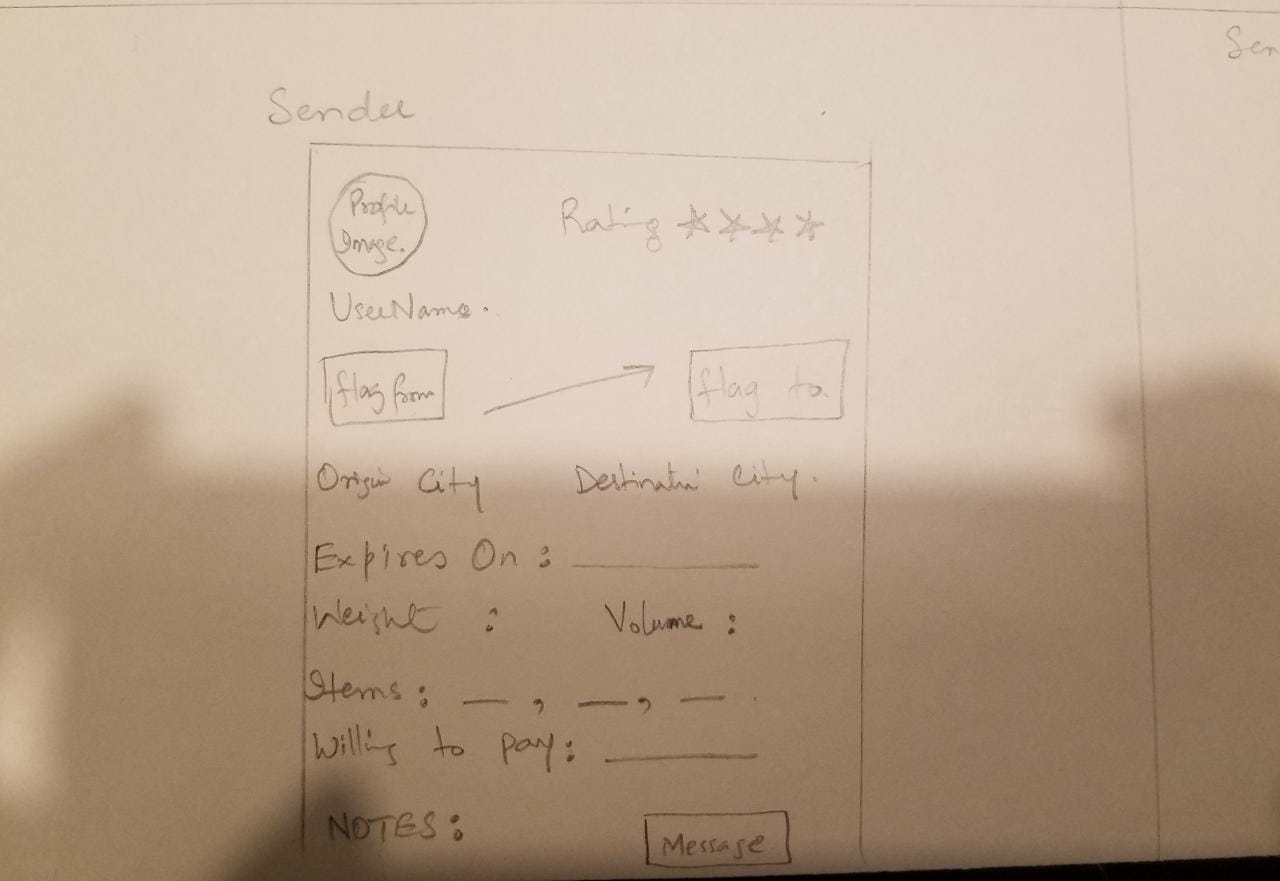 Sen
Sender
Profile
Image.
Rating
UserName.
flag from
flag to.
Origin City
Destinatin City.
Expires On :
Weight :
Volume :
Items : , , .
Willing to pay :
NOTES :
Message